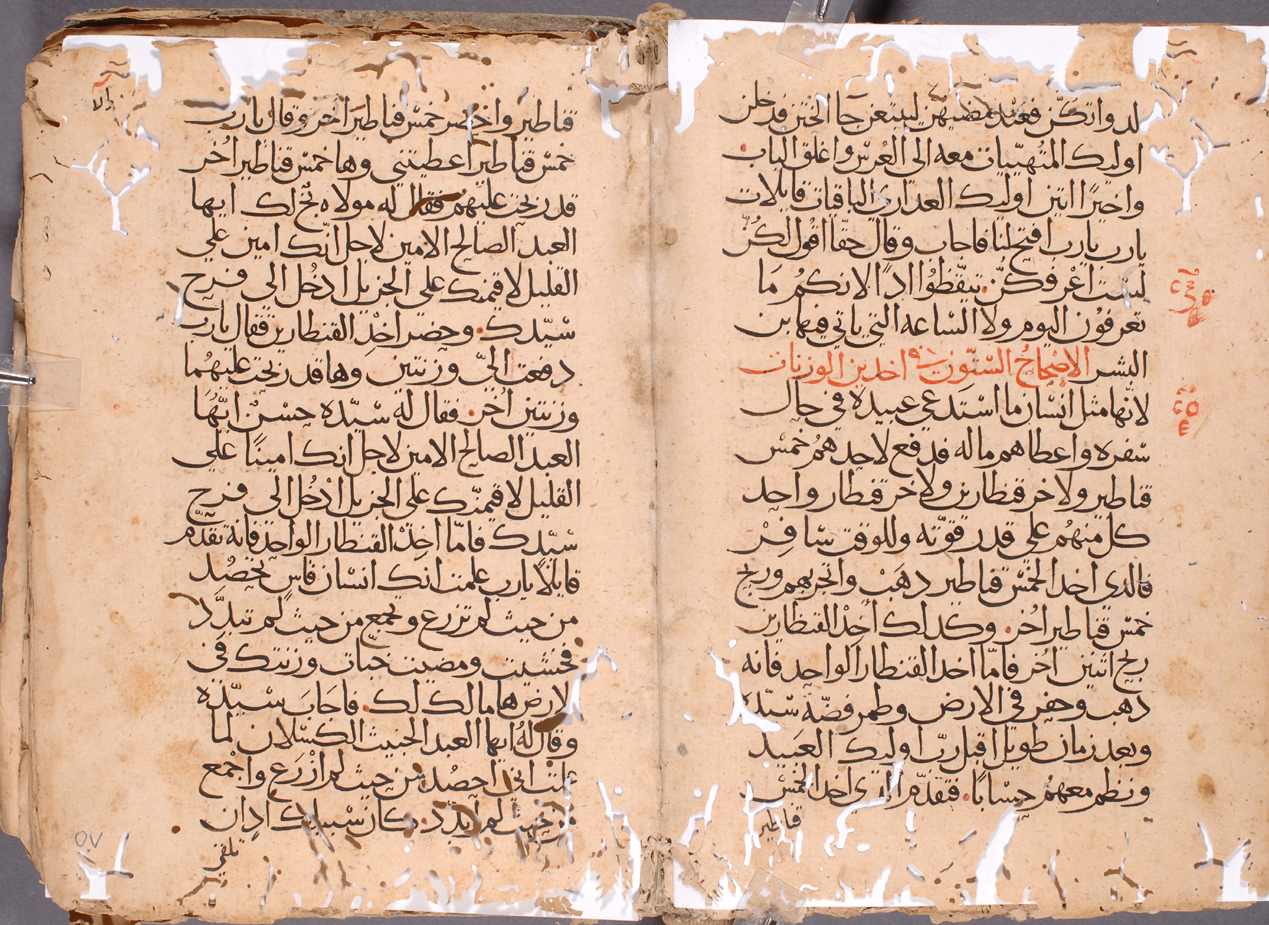 لدواتكن فعند مضيهن ليبتعن جا الختن فدخلن
اوليك المتهييات معه الى العرس واغلق الباب
واخيرًا اتين اوليك العدارى الباقيات قايلات
يارب يارب افتح لنا فاجاب وقال حقا اقول لكن
لست اعرفكن. تيقظوا ادًا لانكم ما
تعرفون اليوم ولا الساعه التي ياتي فيها بن
البشر الاصحاح الستون اخدين الوزنات
لانها مثل انسان ما استدعي عبيده في حال
سفره واعطاهم ماله فدفع لاحدهم خمس
قناطير ولاخر قنطارين ولاخر قنطار واحد
كل منهم علي قدر قوته وللوقت سافر
فالدي اخد الخمس قناطير دهب واتجر بهم وربح
خمس قناطير اخر. وكدلك اخد القنطارين
ربح اتنين اخر فاما اخد القنطار الواحد فانه
دهب وحفر في الارض وطمر فضة سيده
وبعد زمان طويل اقبل رب اوليك العبيد
ونظم معهم حسابًا. فتقدم الدي اخد الخمس
قناطير
قناطير واحضر خمس قناطير اخر وقال يارب
خمس قناطير اعطيتني وها خمس قناطير اخر
قد ربحت عليهم فقال له مولاه بخ لك ايها
العبد الصالح الامين لاجل انك امين علي
القليل لاقمنك علي الجزيل ادخل الى فرح
سيدك. وحضر اخد القنطارين فقال يارب
دفعت الي وزنتين وها قد ربحت عليهما
وزنتين اخر. فقال له سيده حسن ايها
العبد الصالح الامين لاجل انك امينًا علي
القليل لاقمنك علي الجزيل ادخل الى فرح
سيدك فاما اخد القنطار الواحد فانه تقدم
قايلا يارب علمت انك انسان قاس تحصد
من حيث لم تزرع وتجمع من حيث لم تبدد
فخشيت ومضيت خبات وزنتك في
الارض ها مالك لك. فاجاب سيده
وقال له ايها العبد الخبيث الكسلان لما
علمت اني احصد من حيث لم ازرع واجمع
من حيث لم ابدد. كان سبيلك ادان
تلقي